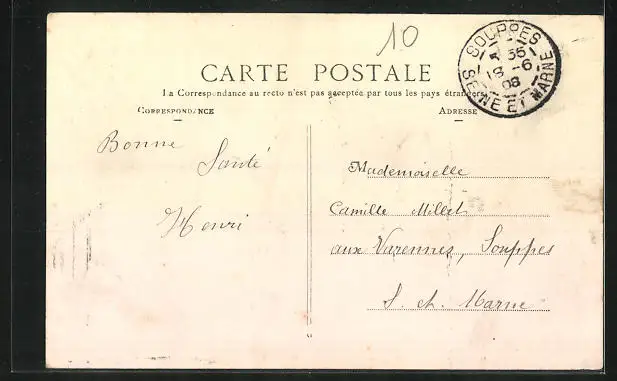 10
SOUPPES
35
18 -6
08
SEINE ET MARNE
CARTE POSTALE
La Correspondance au recto n'est pas acceptée par tous les pays étrangers
CORRESPONDANCE
ADRESSE
Bonne
Santé
Henri
Mademoiselle
Camille Millet
aux Varennes, Souppes
S. et. Marne